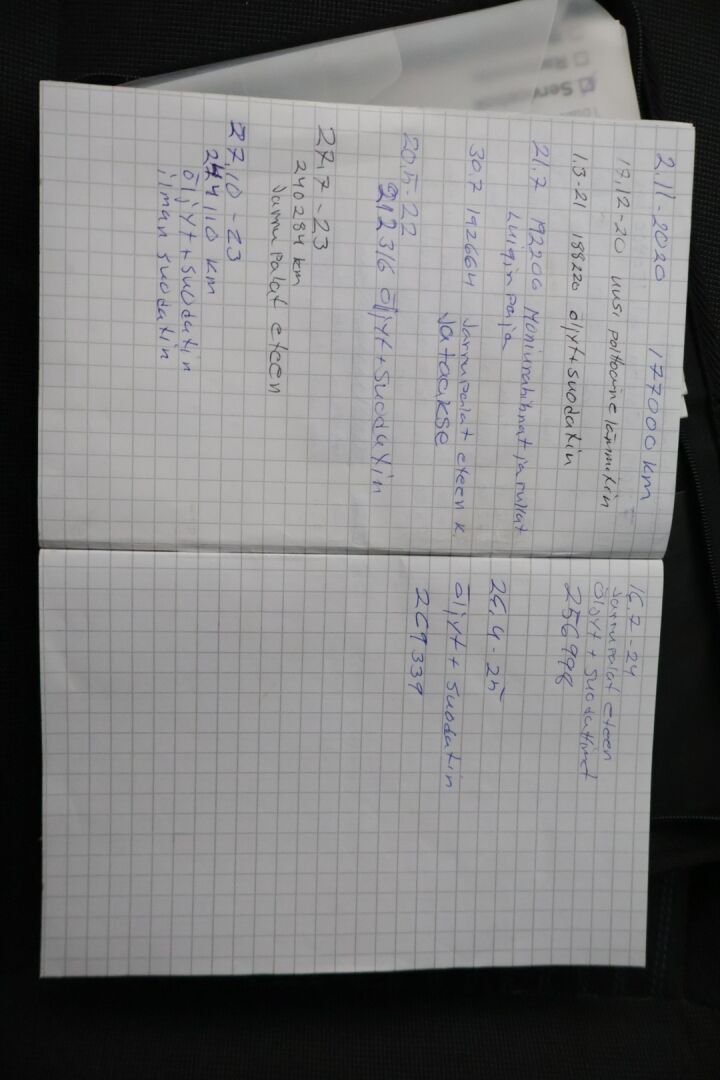 2.11-2020 177000 km
19.12-20 uusi polttoaine lämmitin
1.3-21 188220 öljyt+suodatin
21.7 192200 Moniurahihnat ja rullat
Luigin paja
30.7 192664 Jarrupalat eteen k.
Ja taakse
20.5-22
212316 öljyt+suodatin
27.7-23
240284 km
Jarrupalat eteen
27.10-23
244110 km
öljyt+suodatin
ilman suodatin
16.7-24
Jarrupalat eteen
öljyt + suodattimet
256998
26.4-25
öljyt + suodatin
269339
Serv